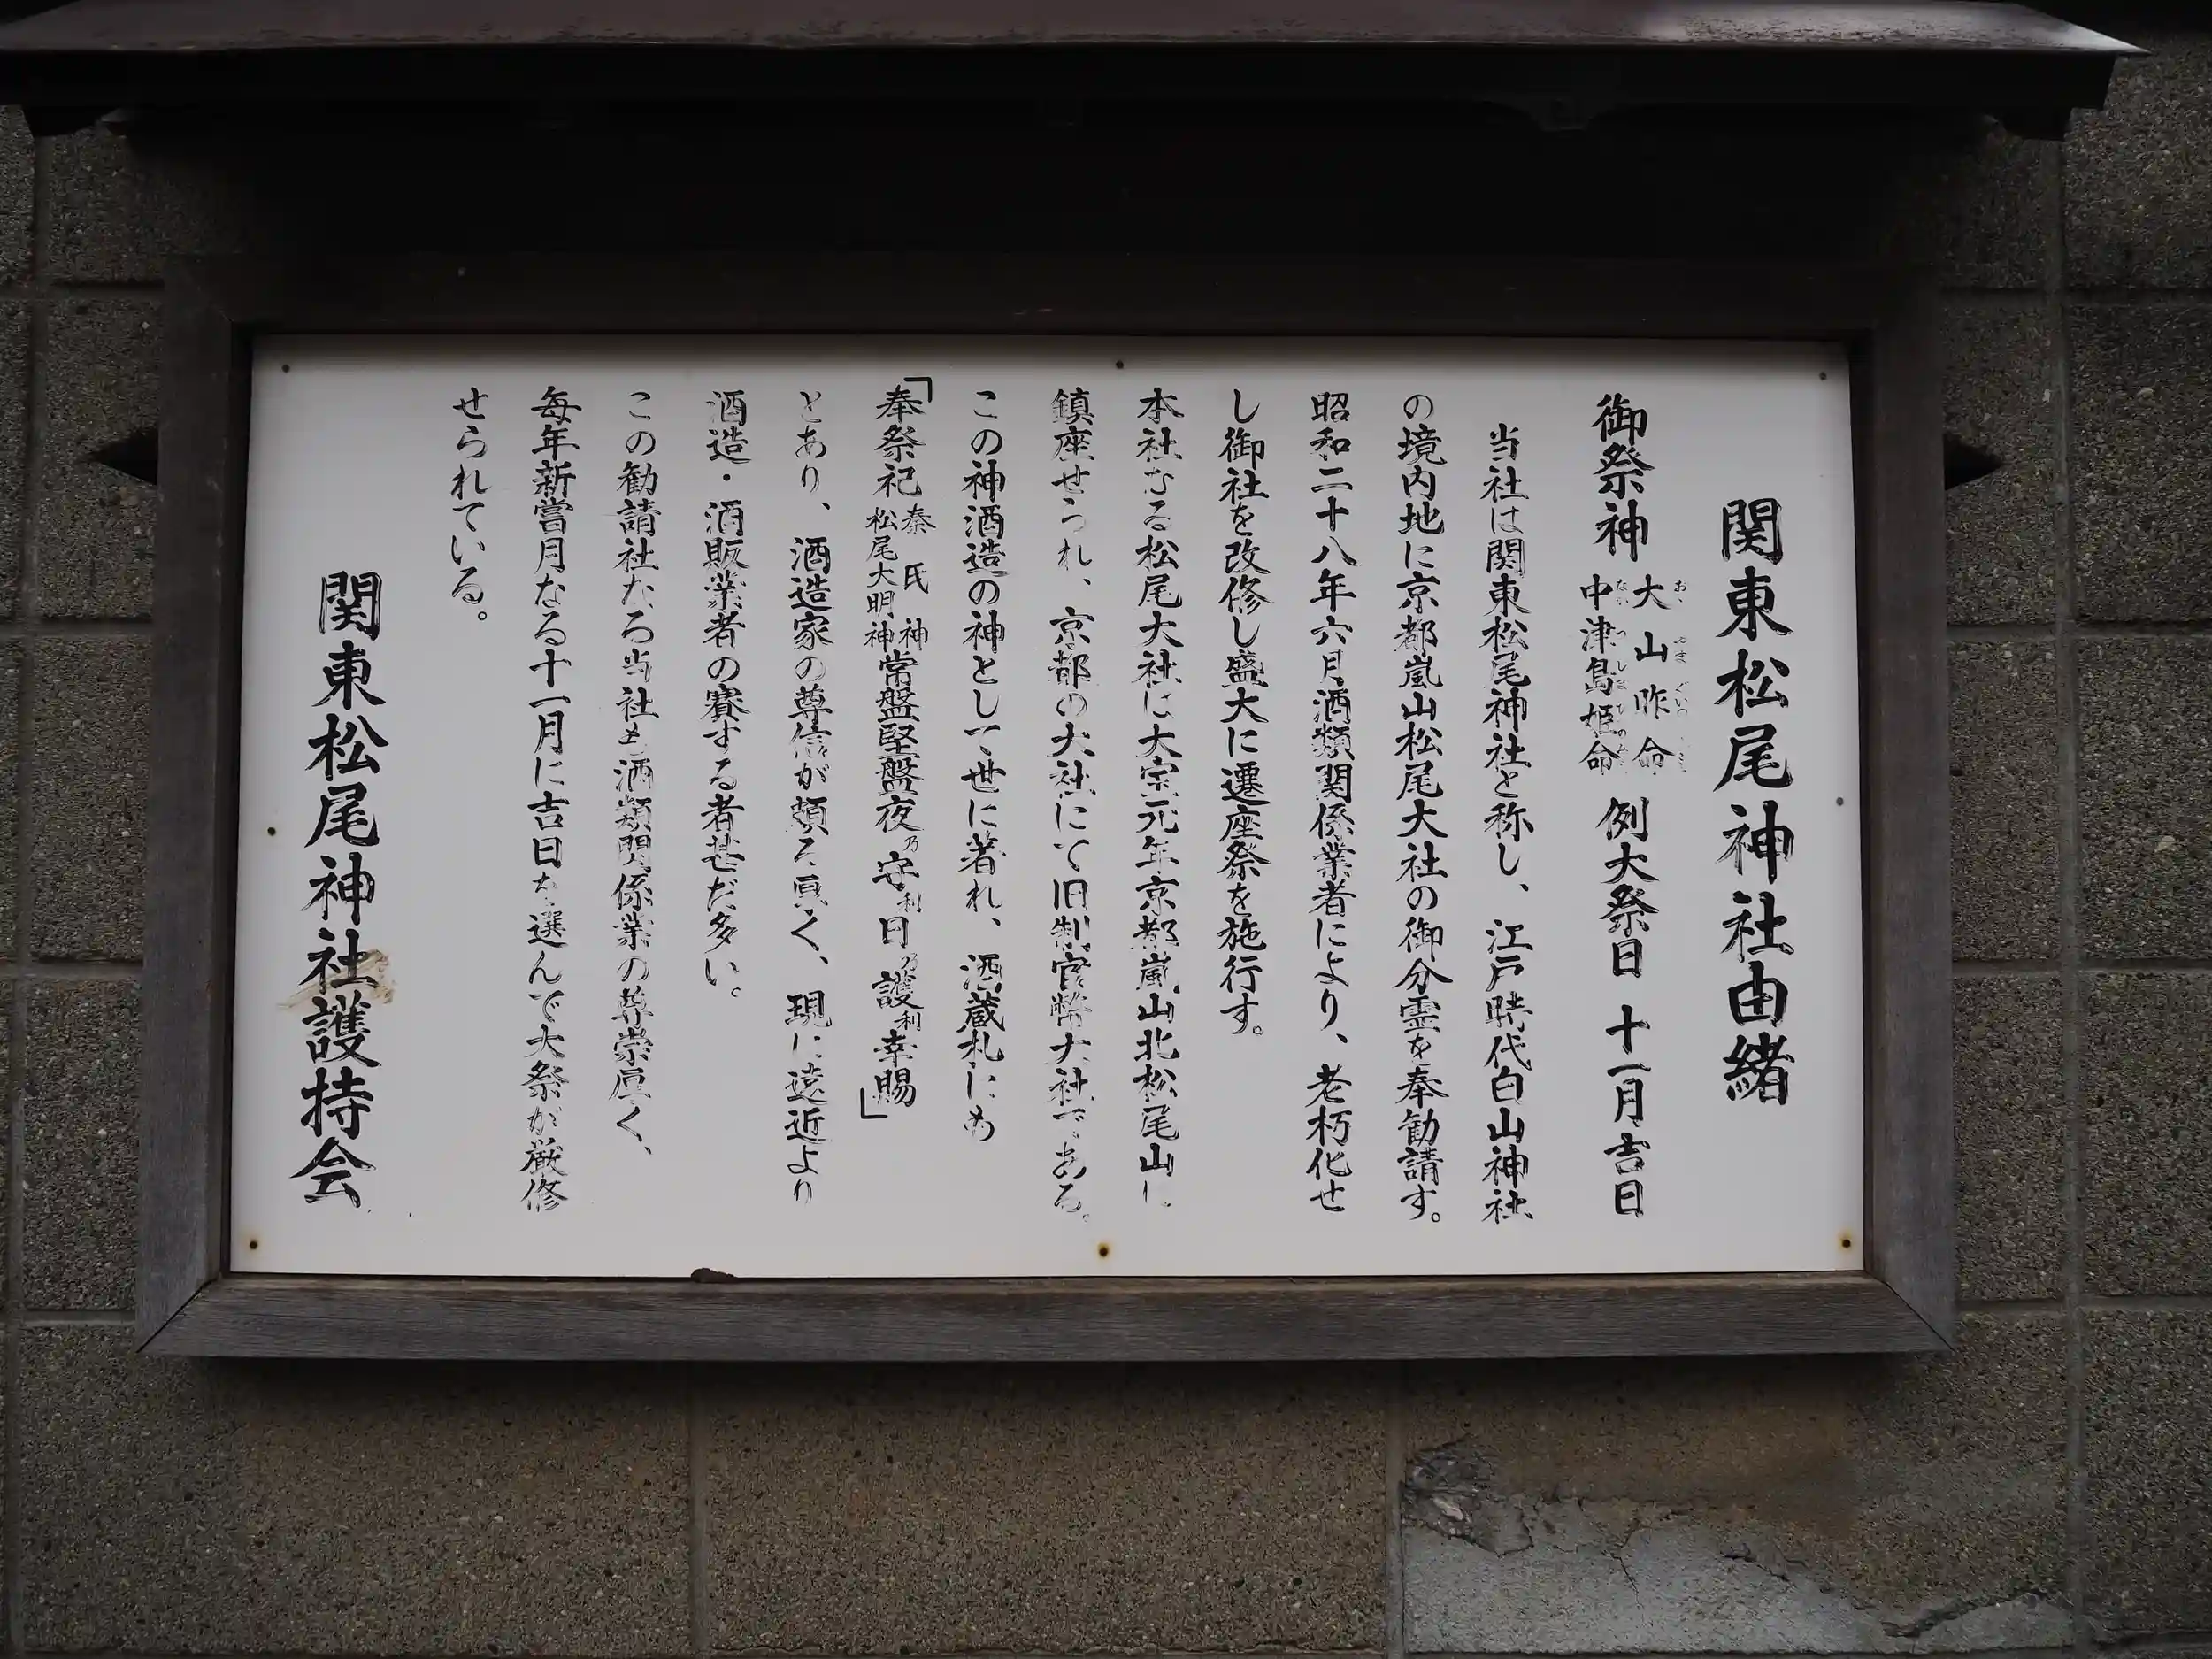 関東松尾神社由緒
御祭神 大山昨命 中津島姫命 例大祭日 十一月吉日
当社は関東松尾神社と称し、江戸時代白山神社
の境内地に京都嵐山松尾大社の御分霊を奉勧請す。
昭和二十八年六月酒類関係業者により、老朽化せ
し御社を改修し盛大に遷座祭を施行す。
本社なる松尾大社は大宗元年京都嵐山北松尾山に
鎮座せられ、京都の大社にて旧制官幣大社である。
この神酒造の神として世に著れ、酒蔵札にも
「奉祭祀 秦氏神 松尾大明神 常盤堅盤夜乃守利日乃護利幸賜」
とあり、酒造家の尊信が頗る厚く、現に遠近より
酒造・酒販業者の賽する者甚だ多い。
この勧請社なる当社も酒類関係業の尊崇厚く、
毎年新嘗月なる十一月に吉日を選んで大祭が厳修
せられている。
関東松尾神社護持会